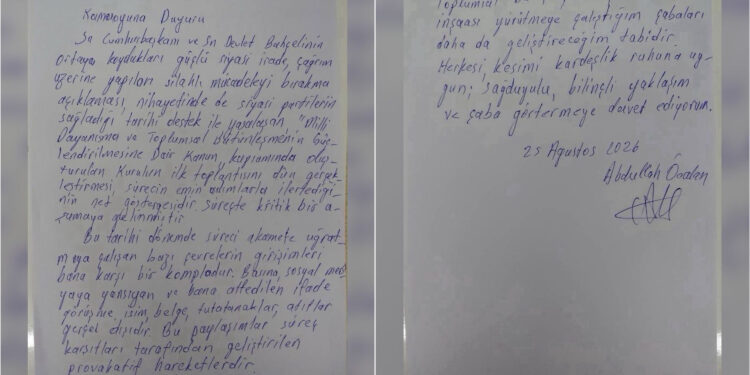 Kamuoyuna Duyuru
Sn Cumhurbaşkanı ve Sn Devlet Bahçelinin
ortaya koydukları güçlü siyasi irade, çağrım
üzerine yapılan silahlı mücadeleyi bırakma
açıklaması, nihayetinde de siyasi partilerin
sağladığı tarihi destek ile yasalaşan "Milli
Dayanışma ve Toplumsal Bütünleşmenin Güç-
lendirilmesine Dair Kanun, kapsamında oluş-
turulan Kurulun ilk toplantısını dün gerçek-
leştirmesi, sürecin emin adımlarla ilerlediği-
nin net göstergesidir. Süreçte kritik bir a-
şamaya gelinmiştir
Bu tarihi dönemde süreci akamete uğrat-
maya çalışan bazı çevrelerin girişimleri
bana karşı bir kompladur. Basına, sosyal med
yaya yansıyan ve bana atfedilen ifade
görüşme, isim, belge, tutatanaklar, atıflar
gerçek dışıdır. Bu paylaşımlar süreç
karşıtları tarafından geliştirilen
provakatif hareketlerdir.
Toplumsal
inşaası yürütmeye çalıştığım çabaları
daha da geliştireceğim tabidir.
Herkesi, kesimi kardeşlik ruhuna uy-
gun; sağduyulu, bilinçli yaklaşım
ve çaba göstermeye davet ediyorum.
25 Ağustos 2026
Abdullah Öcalan